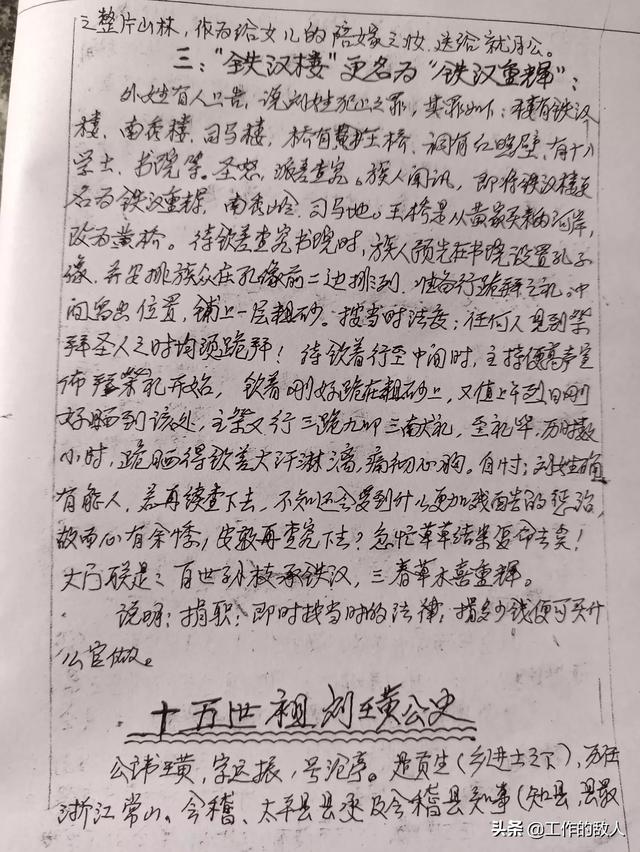 之整片山林，作为给女儿的陪嫁之妆，送给就月公。
三："铁汉楼"更名为"铁汉重辉"：
外姓有人上告，说刘姓犯上之罪，其罪如下：楼有铁汉
楼、南秀楼、司马楼，桥有王桥、洞有红鸭壁、有十八
学士、书院等。圣怒，派差查究。族人闻讯，即将铁汉楼更
名为铁汉重辉，南秀岭、司马地。王桥是从黄家来的河岸，
改为黄桥。待钦差查究书院时，族人预先在书院设置孔子
像，并安排族众在孔像前二边排列，准备行跪拜之礼。中
间留出位置，铺上一层粗砂。按当时法度：任何人见到祭
拜圣人之时均须跪拜！待钦差行至中间时，主持便高声宣
佈拜祭礼开始，钦差刚好跪在粗砂上，又值上午烈日刚
好晒到该处，主祭又行三跪九叩三献大礼，至礼毕，历时数
小时，跪晒得钦差大汗淋漓，痛彻心胸。自忖：刘姓确
有能人，若再续查下去，不知还会受到什么更加残酷的惩治，
故而心有余悸，安敢再查究下去？急忙草草结案复命去矣！
大门联是：百世孙枝承铁汉，三春草木喜重辉。
说明：捐职：即时按当时的法律，捐多少钱便可买什
么官做。
十五世祖刘璜公史
公讳璜，字远振，号沧亭。是贡生（乡进士之下），历任
浙江常山、会稽、太平县县丞及会稽县知事（知县，县最
头条 @工作的敌人